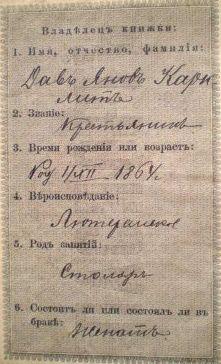 Владѣлецъ книжки:
1. Имя, отчество, фамилія:
Давъ Яновъ Карк
литъ
2. Званіе:
Крестьянинъ
3. Время рожденія или возрастъ:
Род 1864
4. Вѣроисповѣданіе:
Лютеранское
5. Родъ занятій:
Столяръ
6. Состоитъ ли или состоялъ ли въ
бракѣ:
Женатъ